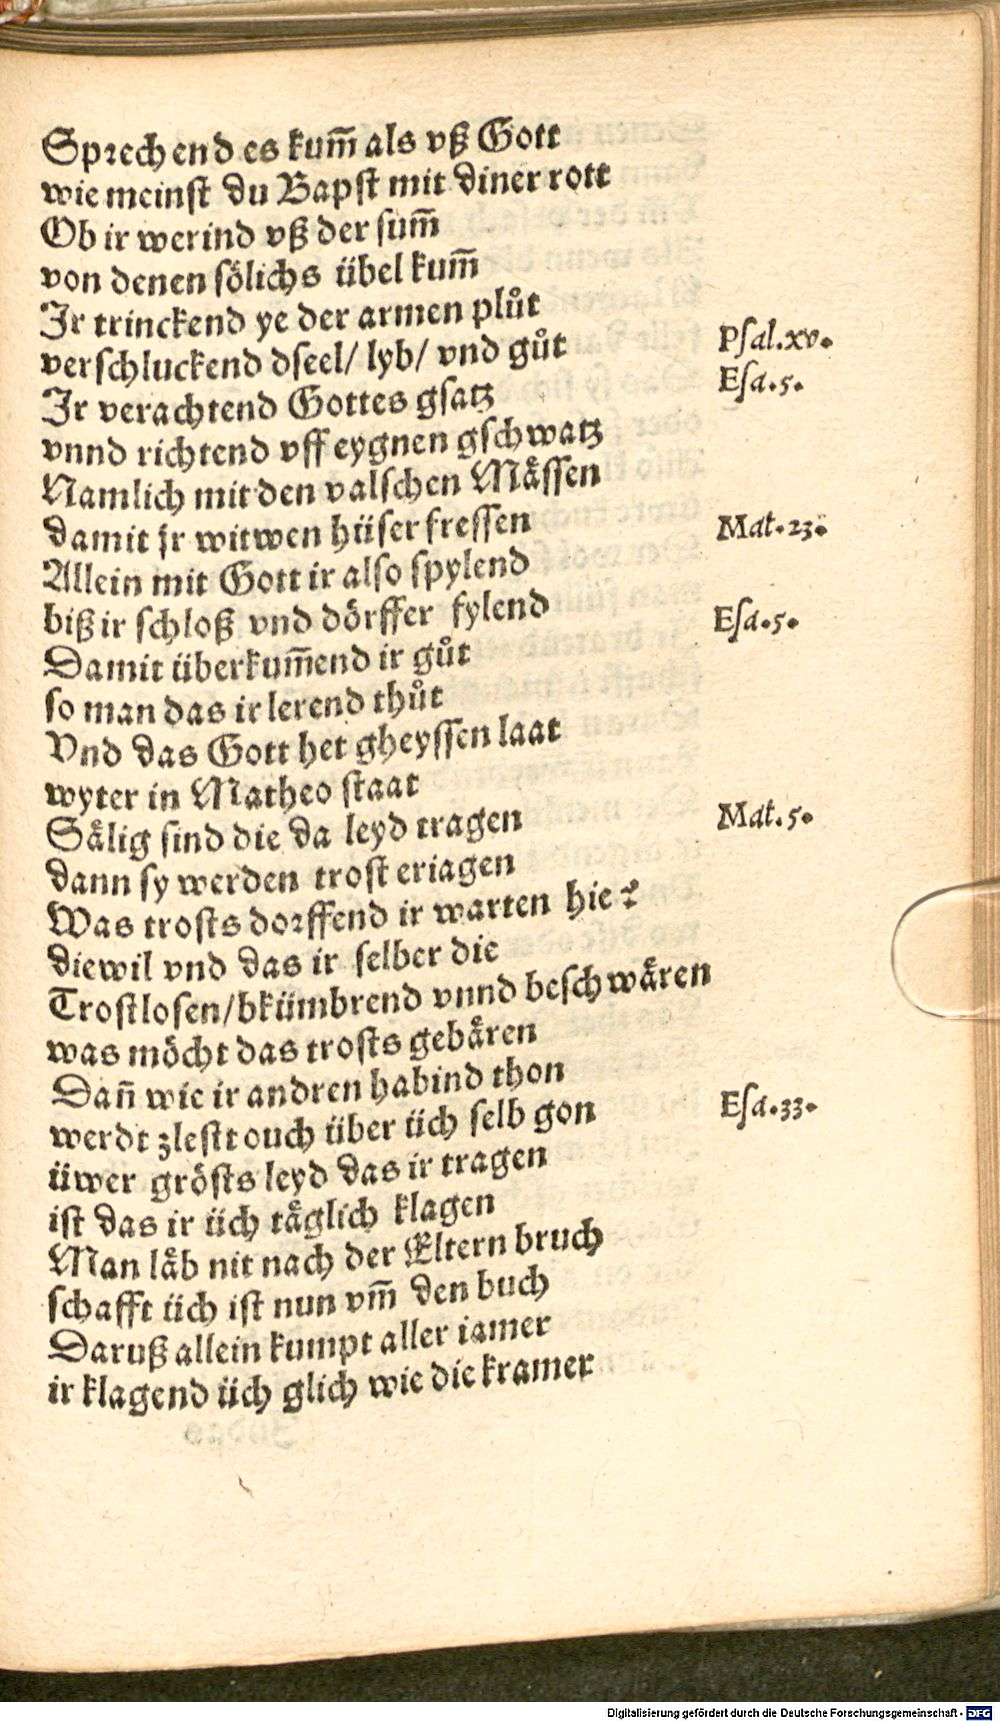 Sprechend es kum̃ als vß Gott
wie meinst du Bapst mit diner rott
Ob ir werind vß der sum̃
von denen sölichs übel kum̃
Jr trinckend ye der armen plůt
verschluckend dseel/ lyb/ vnd gůt
Psal.xv.
Jr verachtend Gottes gsatz
Esa.5.
vnnd richtend vff eygnen gschwatz
Namlich mit den valschen Mässen
damit jr witwen hüser fressen
Mat.23.
Allein mit Gott ir also spylend
biß ir schloß vnd dörffer fylend
Esa.5.
Damit überkum̃end ir gůt
so man das ir lerend thůt
Vnd das Gott het gheyssen laat
wyter in Matheo staat
Sälig sind die da leyd tragen
Mat.5.
dann sy werden trost eriagen
Was trosts dorffend ir warten hie?
diewil vnd das ir selber die
Trostlosen/bkümbrend vnnd beschwären
was möcht das trosts gebären
Dañ wie ir andren habind thon
werdt zlestt ouch über üch selb gon
Esa.33.
üwer grösts leyd das ir tragen
ist das ir üch täglich klagen
Man läb nit nach der Eltern bruch
schafft üch ist nun vm̃ den buch
Daruß allein kumpt aller iamer
ir klagend üch glich wie die kramer
Digitalisierung gefördert durch die Deutsche Forschungsgemeinschaft - DFG